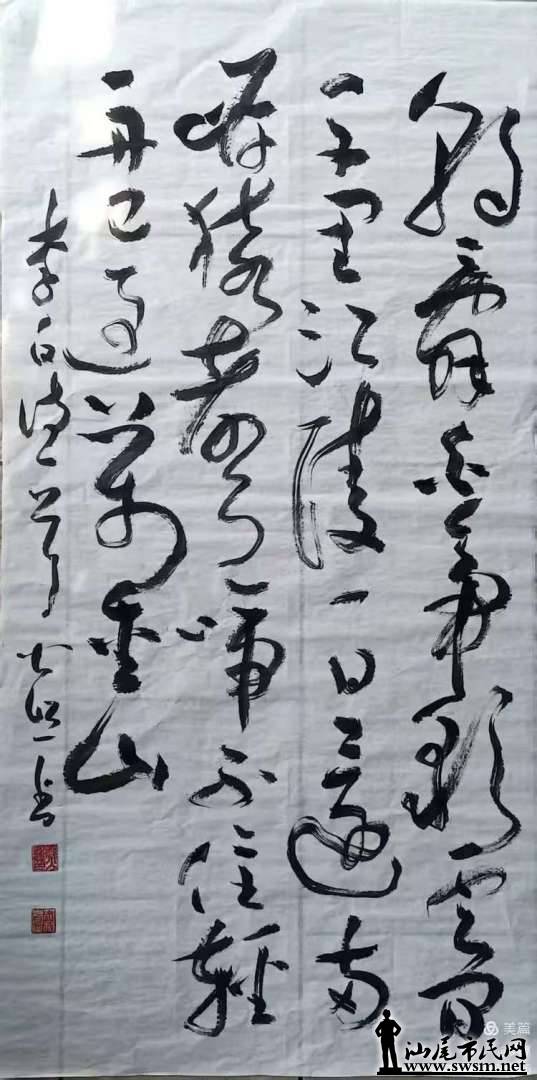 朝辭白帝彩雲間
千里江陵一日還兩
岸猿聲啼不住輕
舟已過萬重山
李白诗一首 书
美篇
汕尾市民网
www.swsm.net